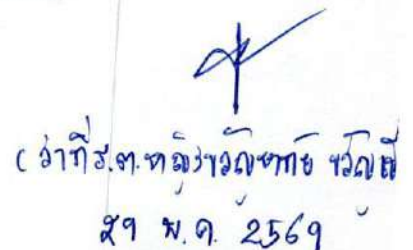 (ว่าที่ ร.ต.หญิงขวัญหทัย ขวัญดี
29 พ.ค. 2569